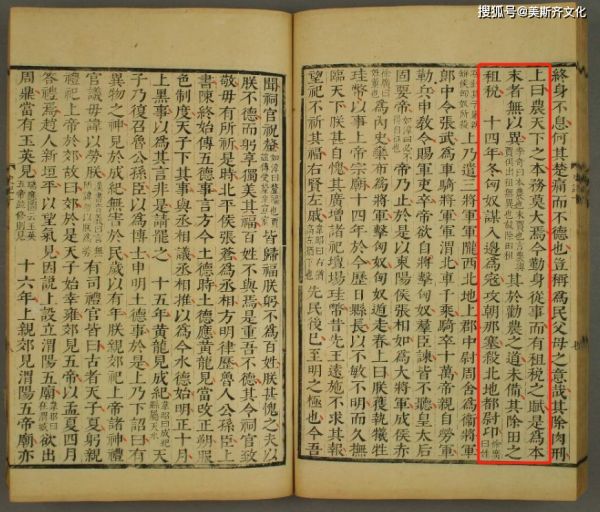 搜狐号@美斯齐文化
終身不息何其楚痛而不德也豈稱爲民父母之意哉其除肉刑
上曰農天下之本務莫大焉今勤身從事而有租稅之賦是爲本
末者無以異 其於勸農之道未備其除田之
租稅 十四年冬匈奴謀入邊爲寇攻朝那塞殺北地都尉卬
上乃遣三將軍軍隴西北地上郡中尉周舍爲衞將軍
郎中令張武爲車騎將軍軍渭北車千乘騎卒十萬帝親自勞軍
勒兵申敎令賜軍吏卒帝欲自將擊匈奴羣臣諫皆不聽皇太后
固要帝 帝乃止於是以東陽侯張相如爲大將軍成侯赤
爲內史欒布爲將軍擊匈奴匈奴遁走春上曰朕獲執犧牲
珪幣以事上帝宗廟十四年於今歷日縣長以不敏不明而久撫
臨天下朕甚自愧其廣增諸祀墠場珪幣昔先王遠施不求其報
望祀不祈其福右賢左戚 先民後己至明之極也今吾
聞祠官祝釐 皆歸福朕躬不爲百姓朕甚愧之夫以
朕不德而躬享獨美其福百姓不與焉是重吾不德其令祠官致
敬毋有所祈是時北平侯張蒼爲丞相方明律歷魯人公孫臣上
書陳終始傳五德事言方今土德時土德應黃龍見當改正朔服
色制度天子下其事與丞相議丞相推以爲今水德始明正十月
上黑事以爲其言非是請罷之 十五年黃龍見成紀
子乃復召魯公孫臣以爲博士申明土德事於是上乃下詔曰有
異物之神見於成紀無害於民歲以有年朕親郊祀上帝諸神禮
官議毋諱以勞朕 有司禮官皆曰古者天子夏躬親
禮祀上帝於郊故曰郊於是天子始幸雍郊見五帝以孟夏四月
答禮焉趙人新垣平以望氣見因說上設立渭陽五廟 欲出
周鼎當有玉英見 十六年上親郊見渭陽五帝廟亦